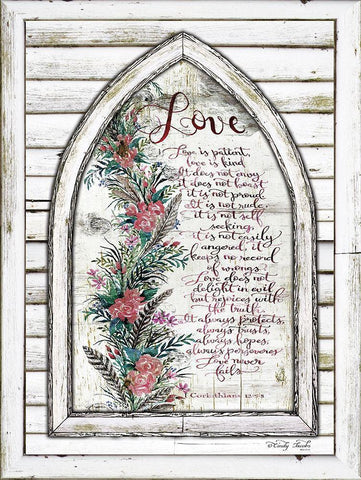 Love
Love is patient,
love is kind
It does not envy
it does not boast
it is not proud
It is not rude,
it is not self
seeking,
it is not easily
angered, it
keeps no record
of wrongs
Love does not
delight in evil
but rejoices with
the truth.
It always protects,
always trusts,
always hopes,
always perseveres
Love never
fails
1 Corinthians
©Cindy Jacobs